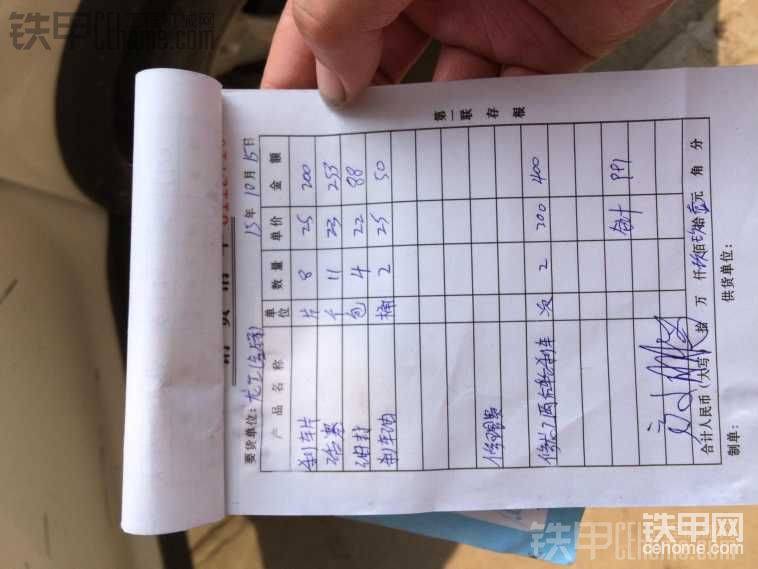 第一联存根
15年10月15日
要货单位:龙工(
产品名称 单位 数量 单价 金额
刹车片 片 8 25 200
活塞 个 11 23 253
油封 包 4 22 88
刹车油 桶 2 25 50
修理费
次 2 200 400
合计 991
合计人民币(大写) 拾 万 仟 玖佰 玖拾 壹元 角 分
制单: 供货单位:
铁甲网
cehome.com